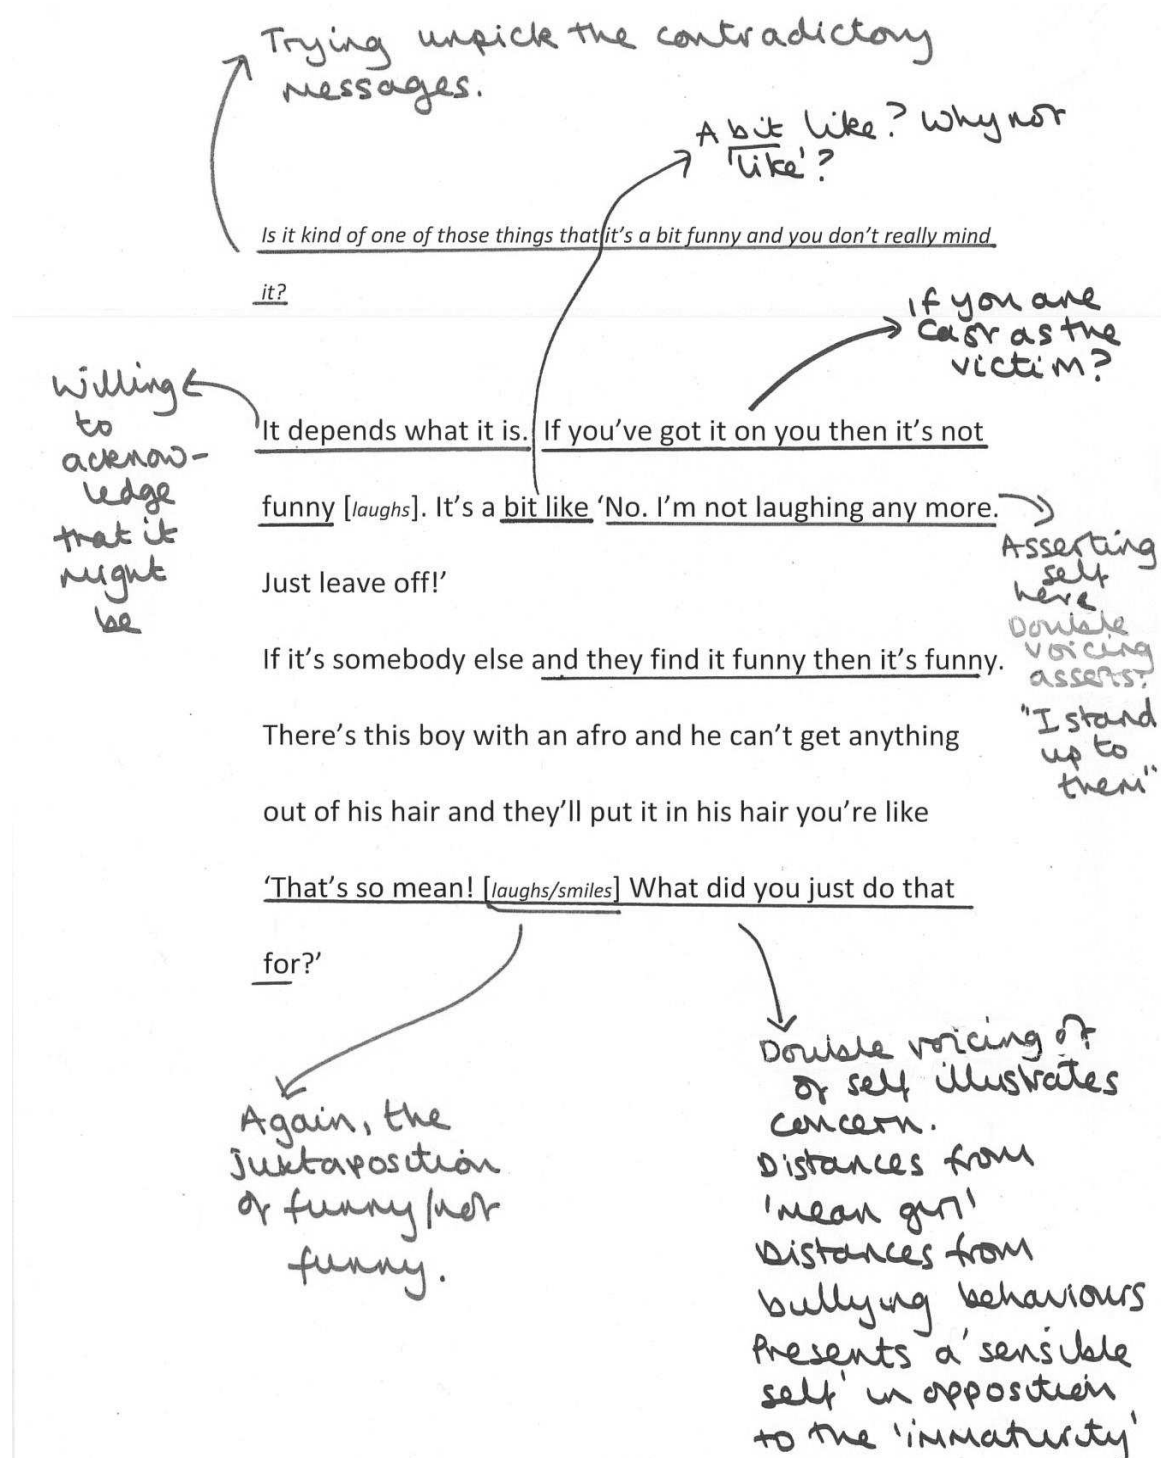 Trying unpick the contradictory
messages.
A bit like? Why not
'like'?
Is it kind of one of those things that it's a bit funny and you don't really mind
it?
If you are
cast as the
victim?
Willing
to
acknow-
ledge
that it
might
be
It depends what it is. If you've got it on you then it's not
funny [laughs]. It's a bit like 'No. I'm not laughing any more.
Just leave off!'
Asserting
self
here
Double
voicing
asserts?
"I stand
up to
them"
If it's somebody else and they find it funny then it's funny.
There's this boy with an afro and he can't get anything
out of his hair and they'll put it in his hair you're like
'That's so mean! [laughs/smiles] What did you just do that
for?'
Again, the
juxtaposition
of funny/not
funny.
Double voicing of
of self illustrates
concern.
Distances from
'mean girl'
Distances from
bullying behaviours
Presents a 'sensible
self' in opposition
to the 'immaturity'